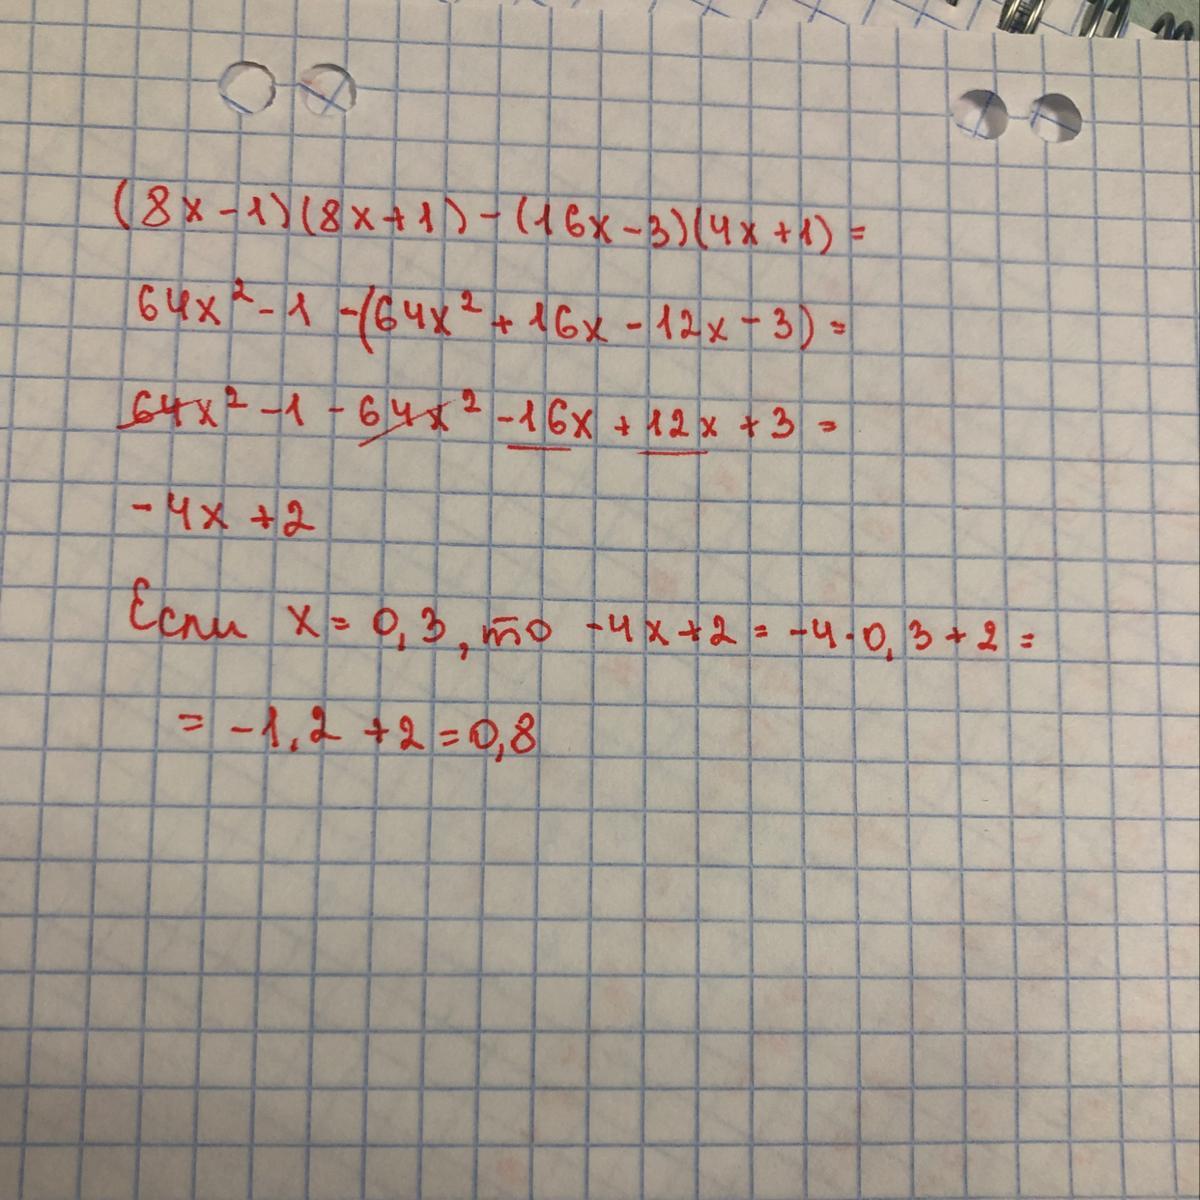 (8x-1)(8x+1)-(16x-3)(4x+1)=
64x²-1-(64x²+16x-12x-3)=
64x²-1-64x²-16x+12x+3=
-4x+2
Если x=0,3, то -4x+2=-4·0,3+2=
=-1,2+2=0,8